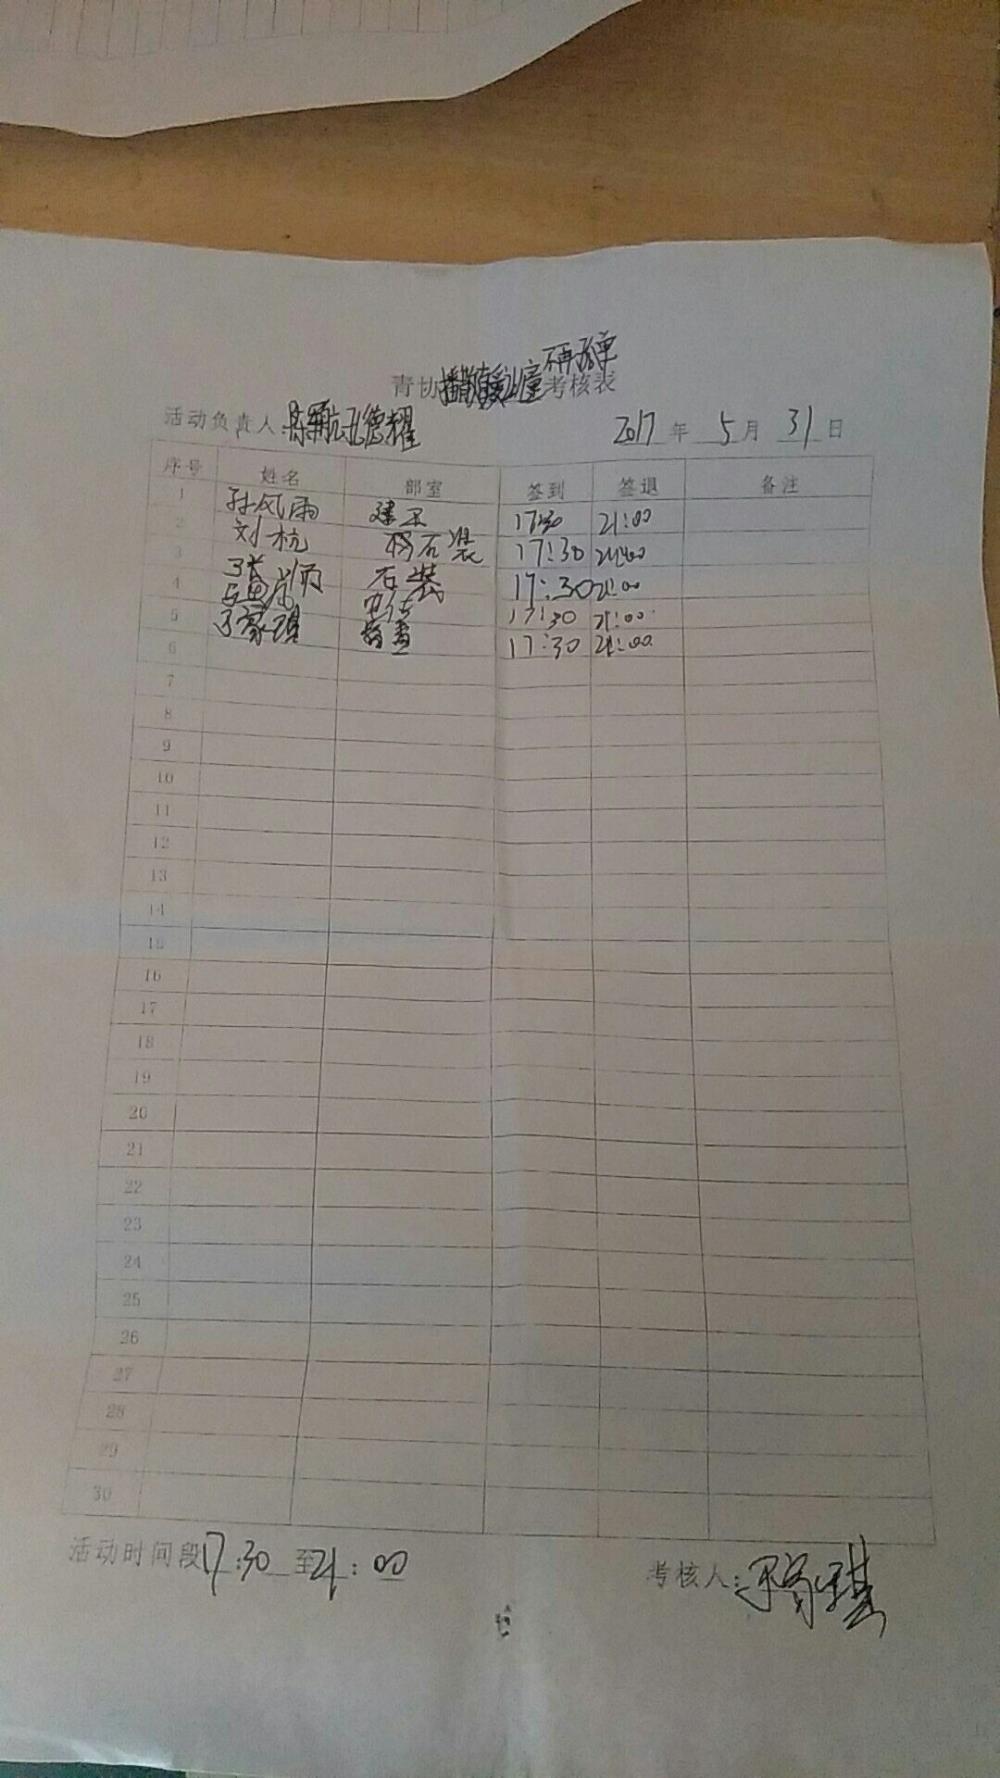 不再孤单
青协播撒真爱让童考核表
活动负责人：陈鹏 孔德耀 2017年 5月 31日
序号 姓名 部室 签到 签退 备注
1 孙风雨 17:30 21:00
2 刘杭 17:30 21:00
3 张 石装 17:30 21:00
4 孟 宣传 17:30 21:00
5 于家琪 督查 17:30 21:00
6
7
8
9
10
11
12
13
14
15
16
17
18
19
20
21
22
23
24
25
26
27
28
29
30
活动时间段17:30至21:00 考核人：于家琪